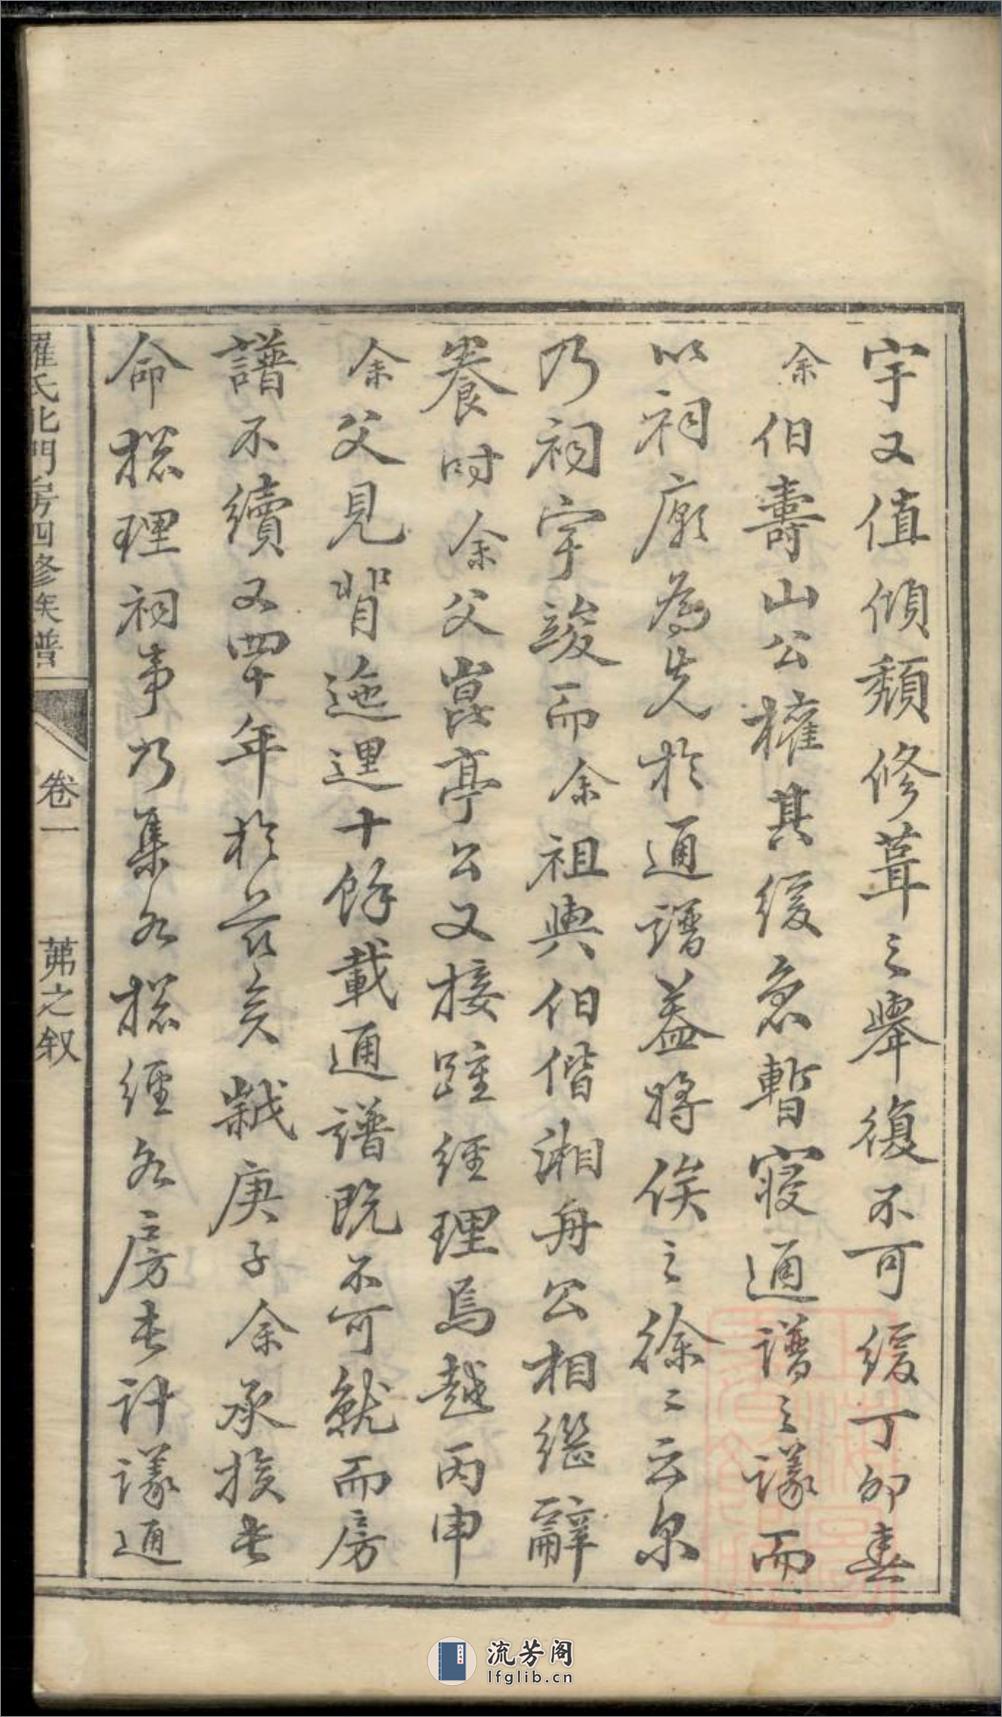 宇又值傾頹修葺之舉復不可緩丁卯春
余伯壽山公權其緩急暫寢通譜之議而
以祠廟為先於通譜蓋將俟之徐徐云尔
乃祠宇竣而余祖與伯偕湘舟公相繼辭
養时余父崑亭公又接踵經理焉越丙申
余父見背迤邐十餘載通譜既不可就而房
譜不續又四十年於茲矣歲庚子余承族長
命摠理祠事乃集各摠經各房長計議通
羅氏北門房四修族譜
卷一
苐之叙
流芳阁
lfglib.cn